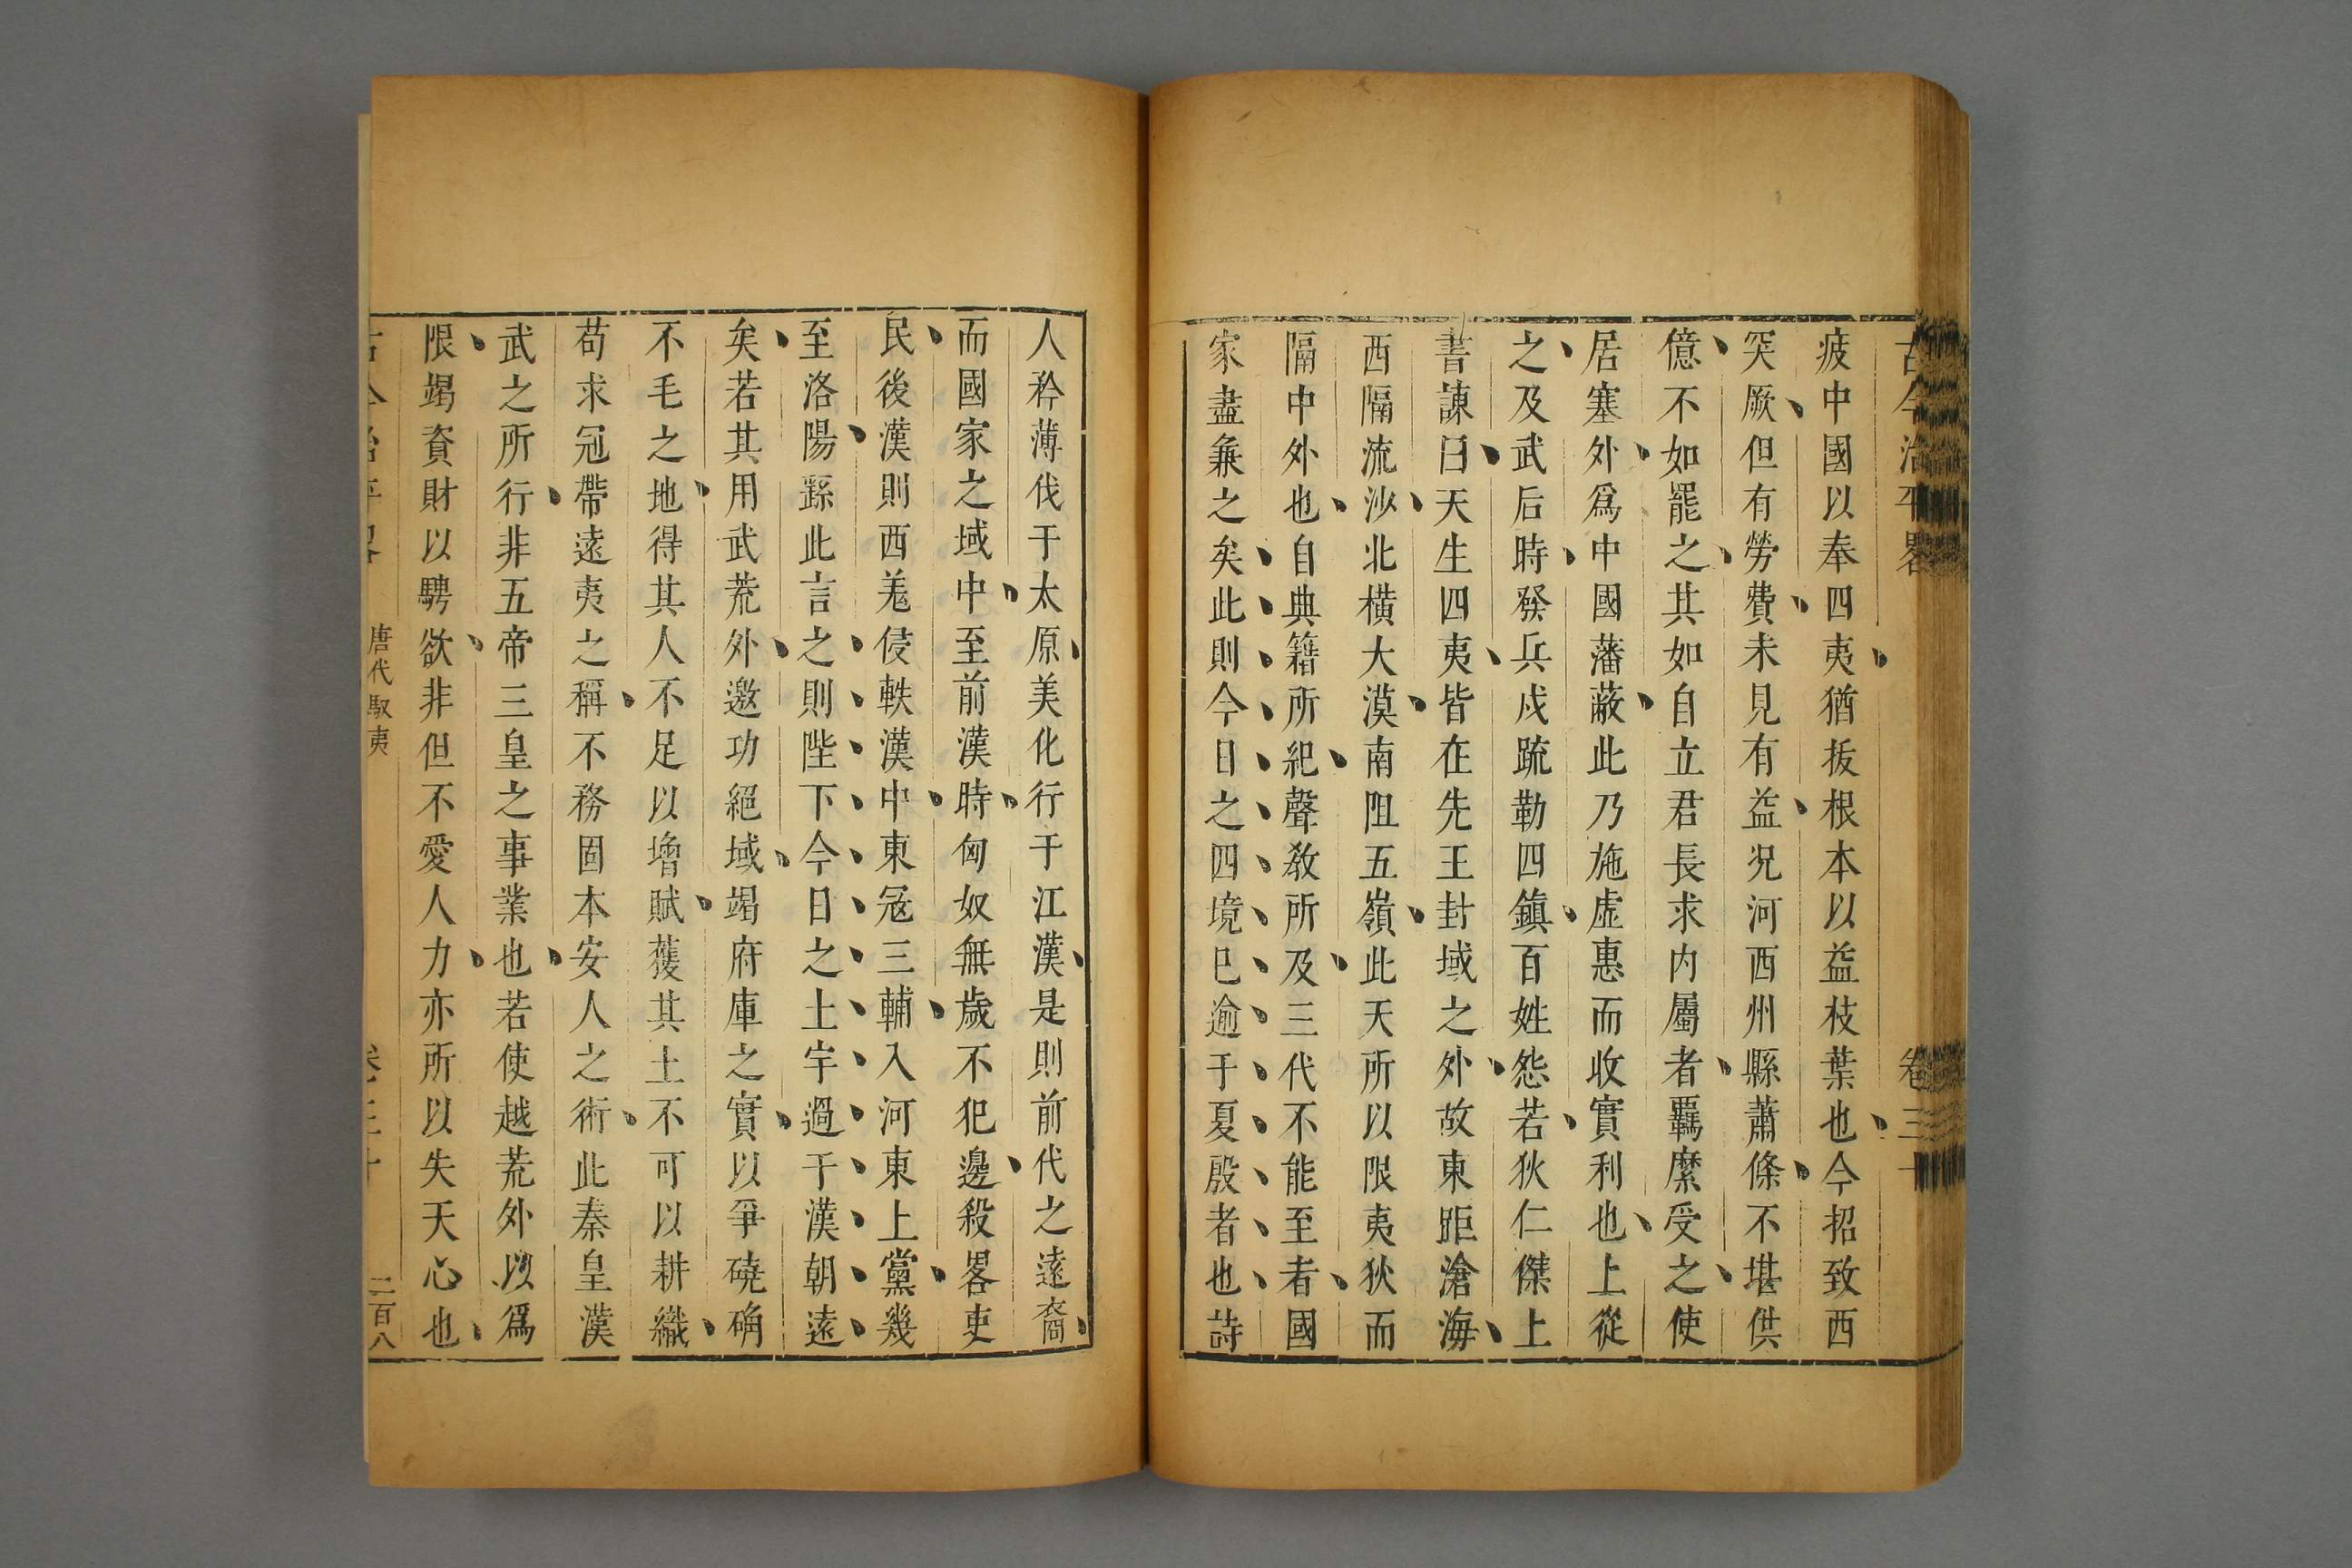 古今治平畧
卷三十
疲中國以奉四夷猶拔根本以益枝葉也今招致西
突厥但有勞費未見有益况河西州縣蕭條不堪供
億不如罷之其如自立君長求内屬者羈縻受之使
居塞外爲中國藩蔽此乃施虛惠而收實利也上從
之及武后時發兵戍疏勒四鎮百姓怨若狄仁傑上
書諫曰天生四夷皆在先王封域之外故東距滄海
西隔流沙北橫大漠南阻五嶺此天所以限夷狄而
隔中外也自典籍所紀聲教所及三代不能至者國
家盡兼之矣此則今日之四境已逾于夏殷者也詩
人矜薄伐于太原美化行于江漢是則前代之遠裔
而國家之域中至前漢時匈奴無歲不犯邊殺畧吏
民後漢則西羗侵軼漢中東冦三輔入河東上黨幾
至洛陽繇此言之則陛下今日之土宇過于漢朝遠
矣若其用武荒外邀功絕域竭府庫之實以爭磽确
不毛之地得其人不足以增賦獲其土不可以耕織
苟求冠帶遠夷之稱不務固本安人之術此秦皇漢
武之所行非五帝三皇之事業也若使越荒外以爲
限竭資財以騁欲非但不愛人力亦所以失天心也
古今治平畧
唐代馭夷
卷三十
二百八